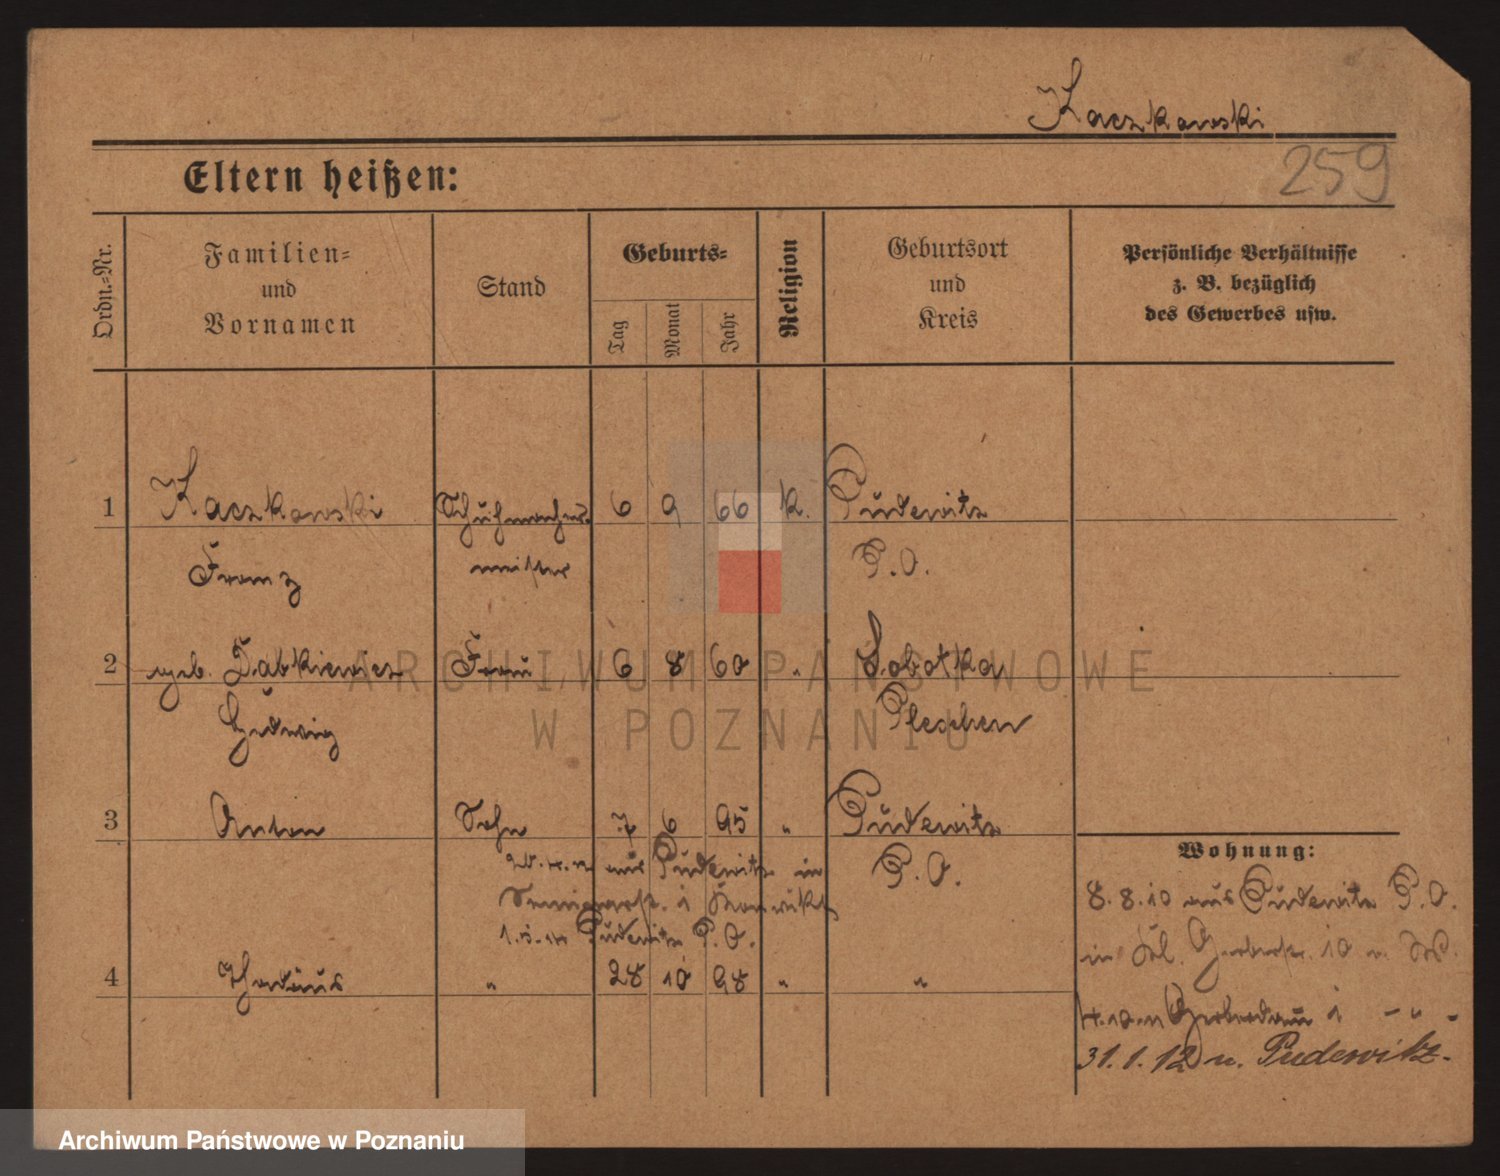 Kaczkowski
259
Eltern heißen:
Ordn.=Nr.
Familien=
und
Vornamen
Stand
Geburts=
Tag
Monat
Jahr
Religion
Geburtsort
und
Kreis
Persönliche Verhältnisse
z. B. bezüglich
des Gewerbes usw.
1 Kaczkowski Schuhmacher= 6 9 66 k. Pudewitz
Franz meister P.O.
2 geb. Dabkiewicz Frau 6 8 60 " Sobotka
Hedwig Pleschen
3 Anton Sohn 7 6 95 " Pudewitz
aus Pudewitz in P.O.
Pudewitz P.O.
4 Thadäus " 28 10 98 " "
Wohnung:
8.8.10 aus Pudewitz P.O.
in 10
4.10.11 Gerberdamm - " -
31.1.12 n. Pudewitz.
ARCHIWUM PAŃSTWOWE
W POZNANIU
Archiwum Państwowe w Poznaniu